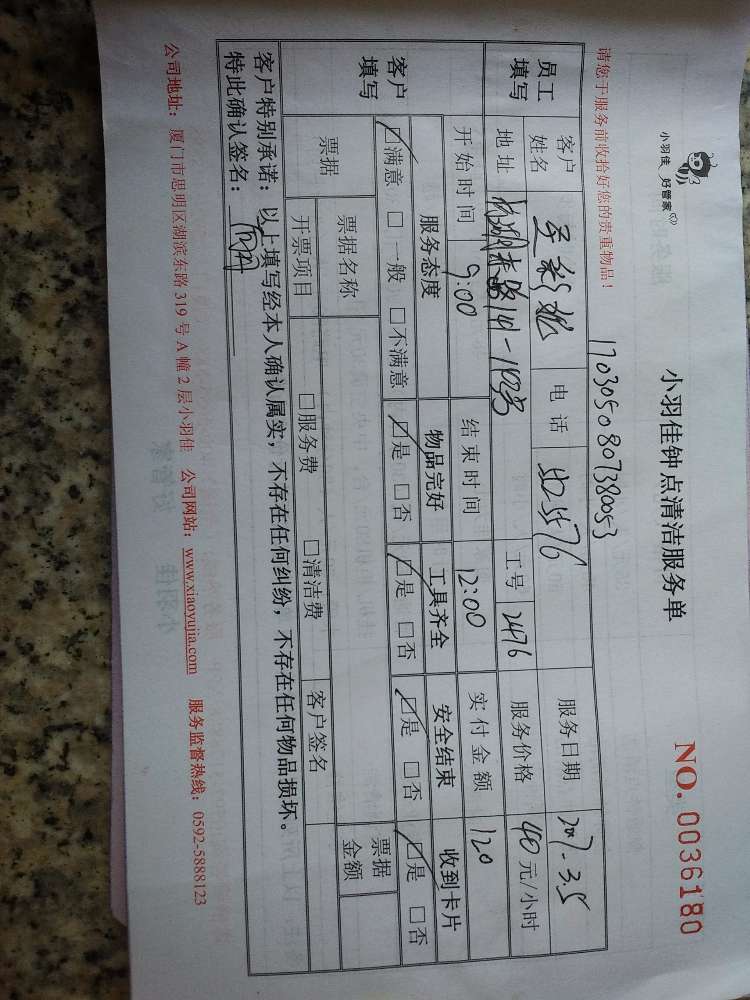 小羽佳 好管家
小羽佳钟点清洁服务单
NO. 0036180
请您于服务前收拾好您的贵重物品!
1703050807380053
员工填写
客户姓名
电话
服务日期 2017.3.5
地址
工号 2476
服务价格 40元/小时
开始时间 9:00 结束时间 12:00 实付金额 120
客户填写
服务态度 物品完好 工具齐全 安全结束 收到卡片
☑满意 □一般 □不满意 ☑是 □否 ☑是 □否 ☑是 □否 ☑是 □否
票据 票据名称 票据金额
开票项目 □服务费 □清洁费 客户签名
客户特别承诺:以上填写经本人确认属实,不存在任何纠纷,不存在任何物品损坏。
特此确认签名:
公司地址:厦门市思明区湖滨东路319号A幢2层小羽佳 公司网站:www.xiaoyujia.com 服务监督热线:0592-5888123